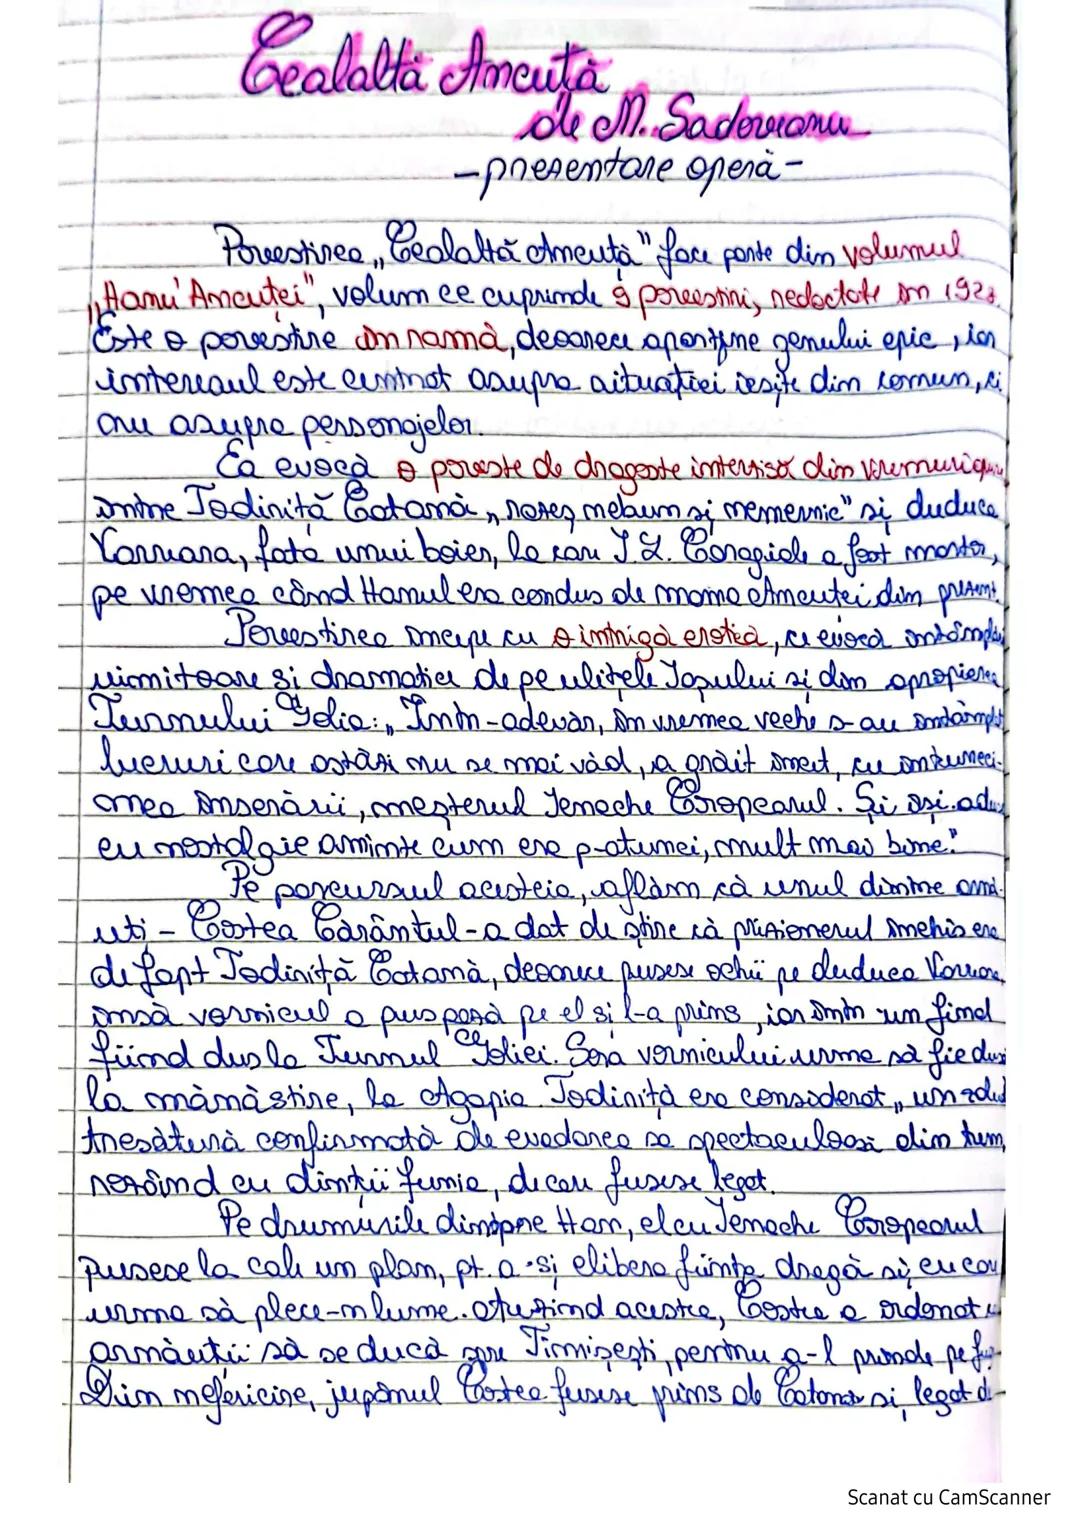 Cealaltă Ancuță
de M. Sadoveanu
- prezentare operă -
Povestirea „Cealaltă Ancuță" face parte din volumul
„Hanu' Ancuței", volum ce cuprinde 9 povestiri, redactate în 1928.
Este o povestire în ramă, deoarece aparține genului epic, iar
interesul este centrat asupra situației ieșite din comun, și
nu asupra personajelor.
Ea evocă o poveste de dragoste interzisă din vremuri
între Todiriță Catană, „răzeș nebun și nemernic" și duduca
Varvara, fata unui boier, la care I.L. Caragiale a fost martor,
pe vremea când Hanul era condus de mama Ancuței din prezent.
Povestirea începe cu o intrigă erotică, ce evocă întâmplări
uimitoare și dramatice de pe ulițele Iașului și din apropierea
Turnului Golia: „Într-adevăr, în vremea veche s-au întâmplat
lucruri care astăzi nu se mai văd, a grăit încet, cu întuneci-
mea înserării, meșterul Ienache Coropcarul. Și își adu
cu nostalgie aminte cum era p-atunci, mult mai bine."
Pe parcursul acesteia, aflăm că unul dintre arnă-
uți - Costea Căruntul - a dat de știre că prizonierul închis era
de fapt Todiriță Catană, deoarece pusese ochii pe duduca Varvara,
însă vornicul a pus pază pe el și l-a prins, iar într un final
fiind dus la Turnul Goliei. Sora vornicului urma să fie dusă
la mănăstire, la Agapia. Todiriță era considerat „un
tresătură confirmată de evadarea sa spectaculoasă din turn,
rozând cu dinții funia, de care fusese legat.
Pe drumurile dinspre Han, el cu Ienache Coropcarul
pusese la cale un plan, pt. a-și elibera ființa dragă și cu care
urma să plece-n lume. Auzind acestea, Costea a ordonat
arnăuții să se ducă spre Timișești, pentru a-l prinde pe
Din nefericire, jupânul Costea fusese prins de Catană și legat de
Scanat cu CamScanner